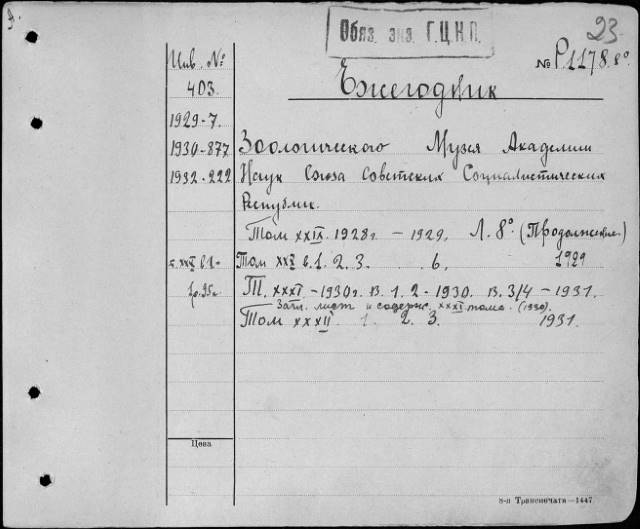 Обяз. экз. Г.Ц.К.П.
23
№ Р1178.8°
Инв. №
403.
Ежегодник
1929-7.
1930-877 Зоологического Музея Академии
1932-222 Наук Союза Советских Социалистических
Республик.
Том XXIX. 1928г. – 1929. Л. 8° (Продолжение.)
т. XXX в.1- Том XXX в. 1. 2. 3. 6. 1929
Т. XXXI – 1930г. в. 1. 2 - 1930. в. 3/4 – 1931.
Загл. лист и содерж. XXXI тома. (1930).
Том XXXII 1. 2. 3. 1931.
Цена
8-я Транспечати—1447